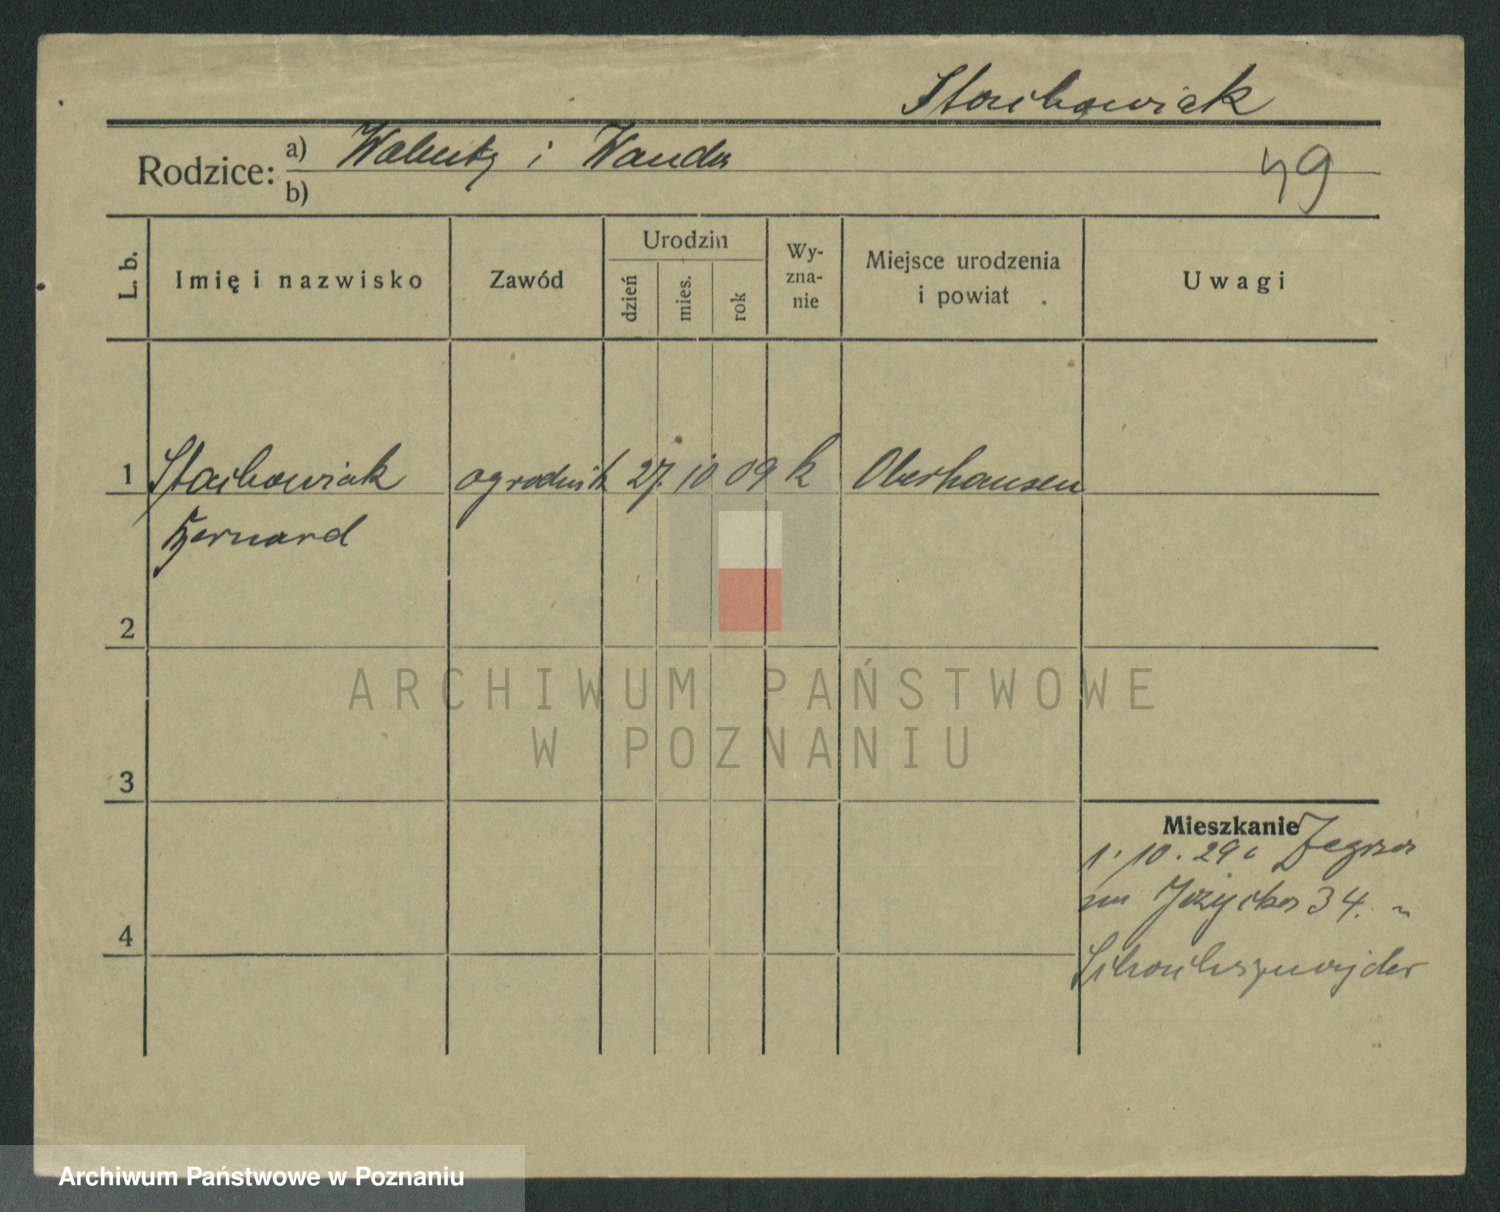 Stachowiak
Rodzice: a) Walenty i Wanda
b)
49
L. b.
Imię i nazwisko
Zawód
Urodzin
dzień
mies.
rok
Wy-
zna-
nie
Miejsce urodzenia
i powiat
Uwagi
1 Stachowiak ogrodnik 27. 10 09 k Oberhausen
Bernard
2
3
4
Mieszkanie
1. 10. 29
Jeżycka 34.
ARCHIWUM PAŃSTWOWE
W POZNANIU
Archiwum Państwowe w Poznaniu